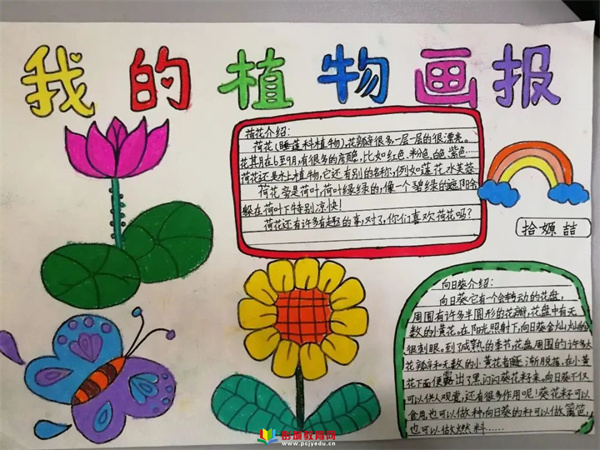 我的植物画报
荷花介绍：
荷花（睡莲科植物），花瓣很多一层一层的很漂亮。
花其月在6至9月，有很多的颜色，比如红色、粉色、白色、紫色…
荷花还是水上植物，它还有别的名称，例如莲花、水芙蓉
荷花旁是荷叶，荷叶绿绿的，像一个碧绿的遮阳伞
躲在荷叶下特别凉快！
荷花还有许多有趣的事，对了，你们喜欢荷花吗？
拾嫄喆
向日葵介绍：
向日葵它有一个会转动的花盘，
周围有许多半圆形的花瓣，花盘中有无
数的小黄花，在阳光照射下，向日葵金灿灿的
很刺眼，到了成熟的季节，花盘周围的许多大
花瓣和无数的小黄花着睡渐脱落，在小黄
花下面便露出了黑闪闪葵花籽来。向日葵不仅
可以供人观赏，还有很多作用呢！葵花籽可以
食用，也可以做种向日葵的秆可以做篱笆，
也可以做燃料……
www.pcjyedu.cn